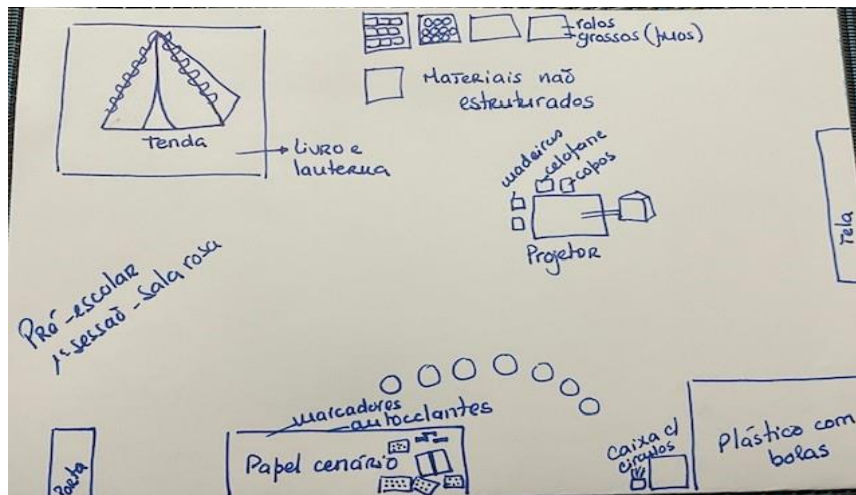 Tenda
Livro e
lanterna
rolos
grossos (
Materiais não
estruturados
madeiras
celofane
copos
Projetor
Tela
Pré-escolar
sessão - sala rosa
marcadores
autoclantes
Papel cenário
Porta
caixa c/
círculos
Plástico com
bolas